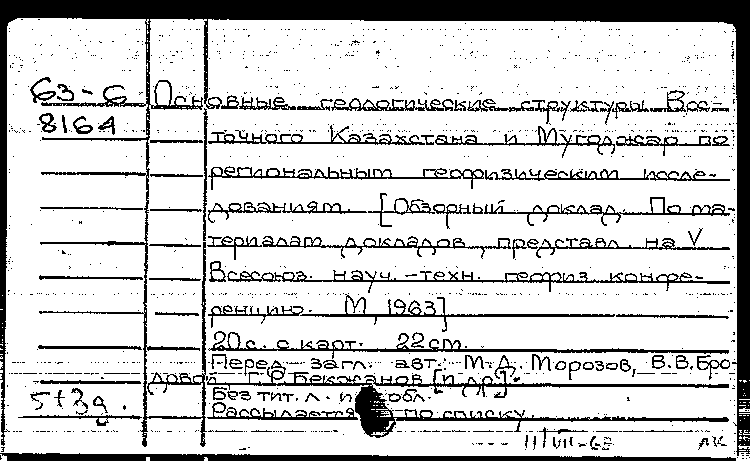 63-6 Основные геологические структуры Вос-
8164 точного Казахстана и Мугоджар по
региональным геофизическим иссле-
дованиям. [Обзорный доклад. По ма-
териалам докладов, представл. на V
Всесоюз. науч.-техн. геофиз. конфе-
ренцию. М, 1963]
20 с. с карт. 22 см.
Перед загл. авт.: М.Д. Морозов, В.В. Бро-
довой Г.Р. Бекжанов [и др].
5+3д. Без тит. л. и обл.
Рассылается по списку.
11/VII-63 ЛК